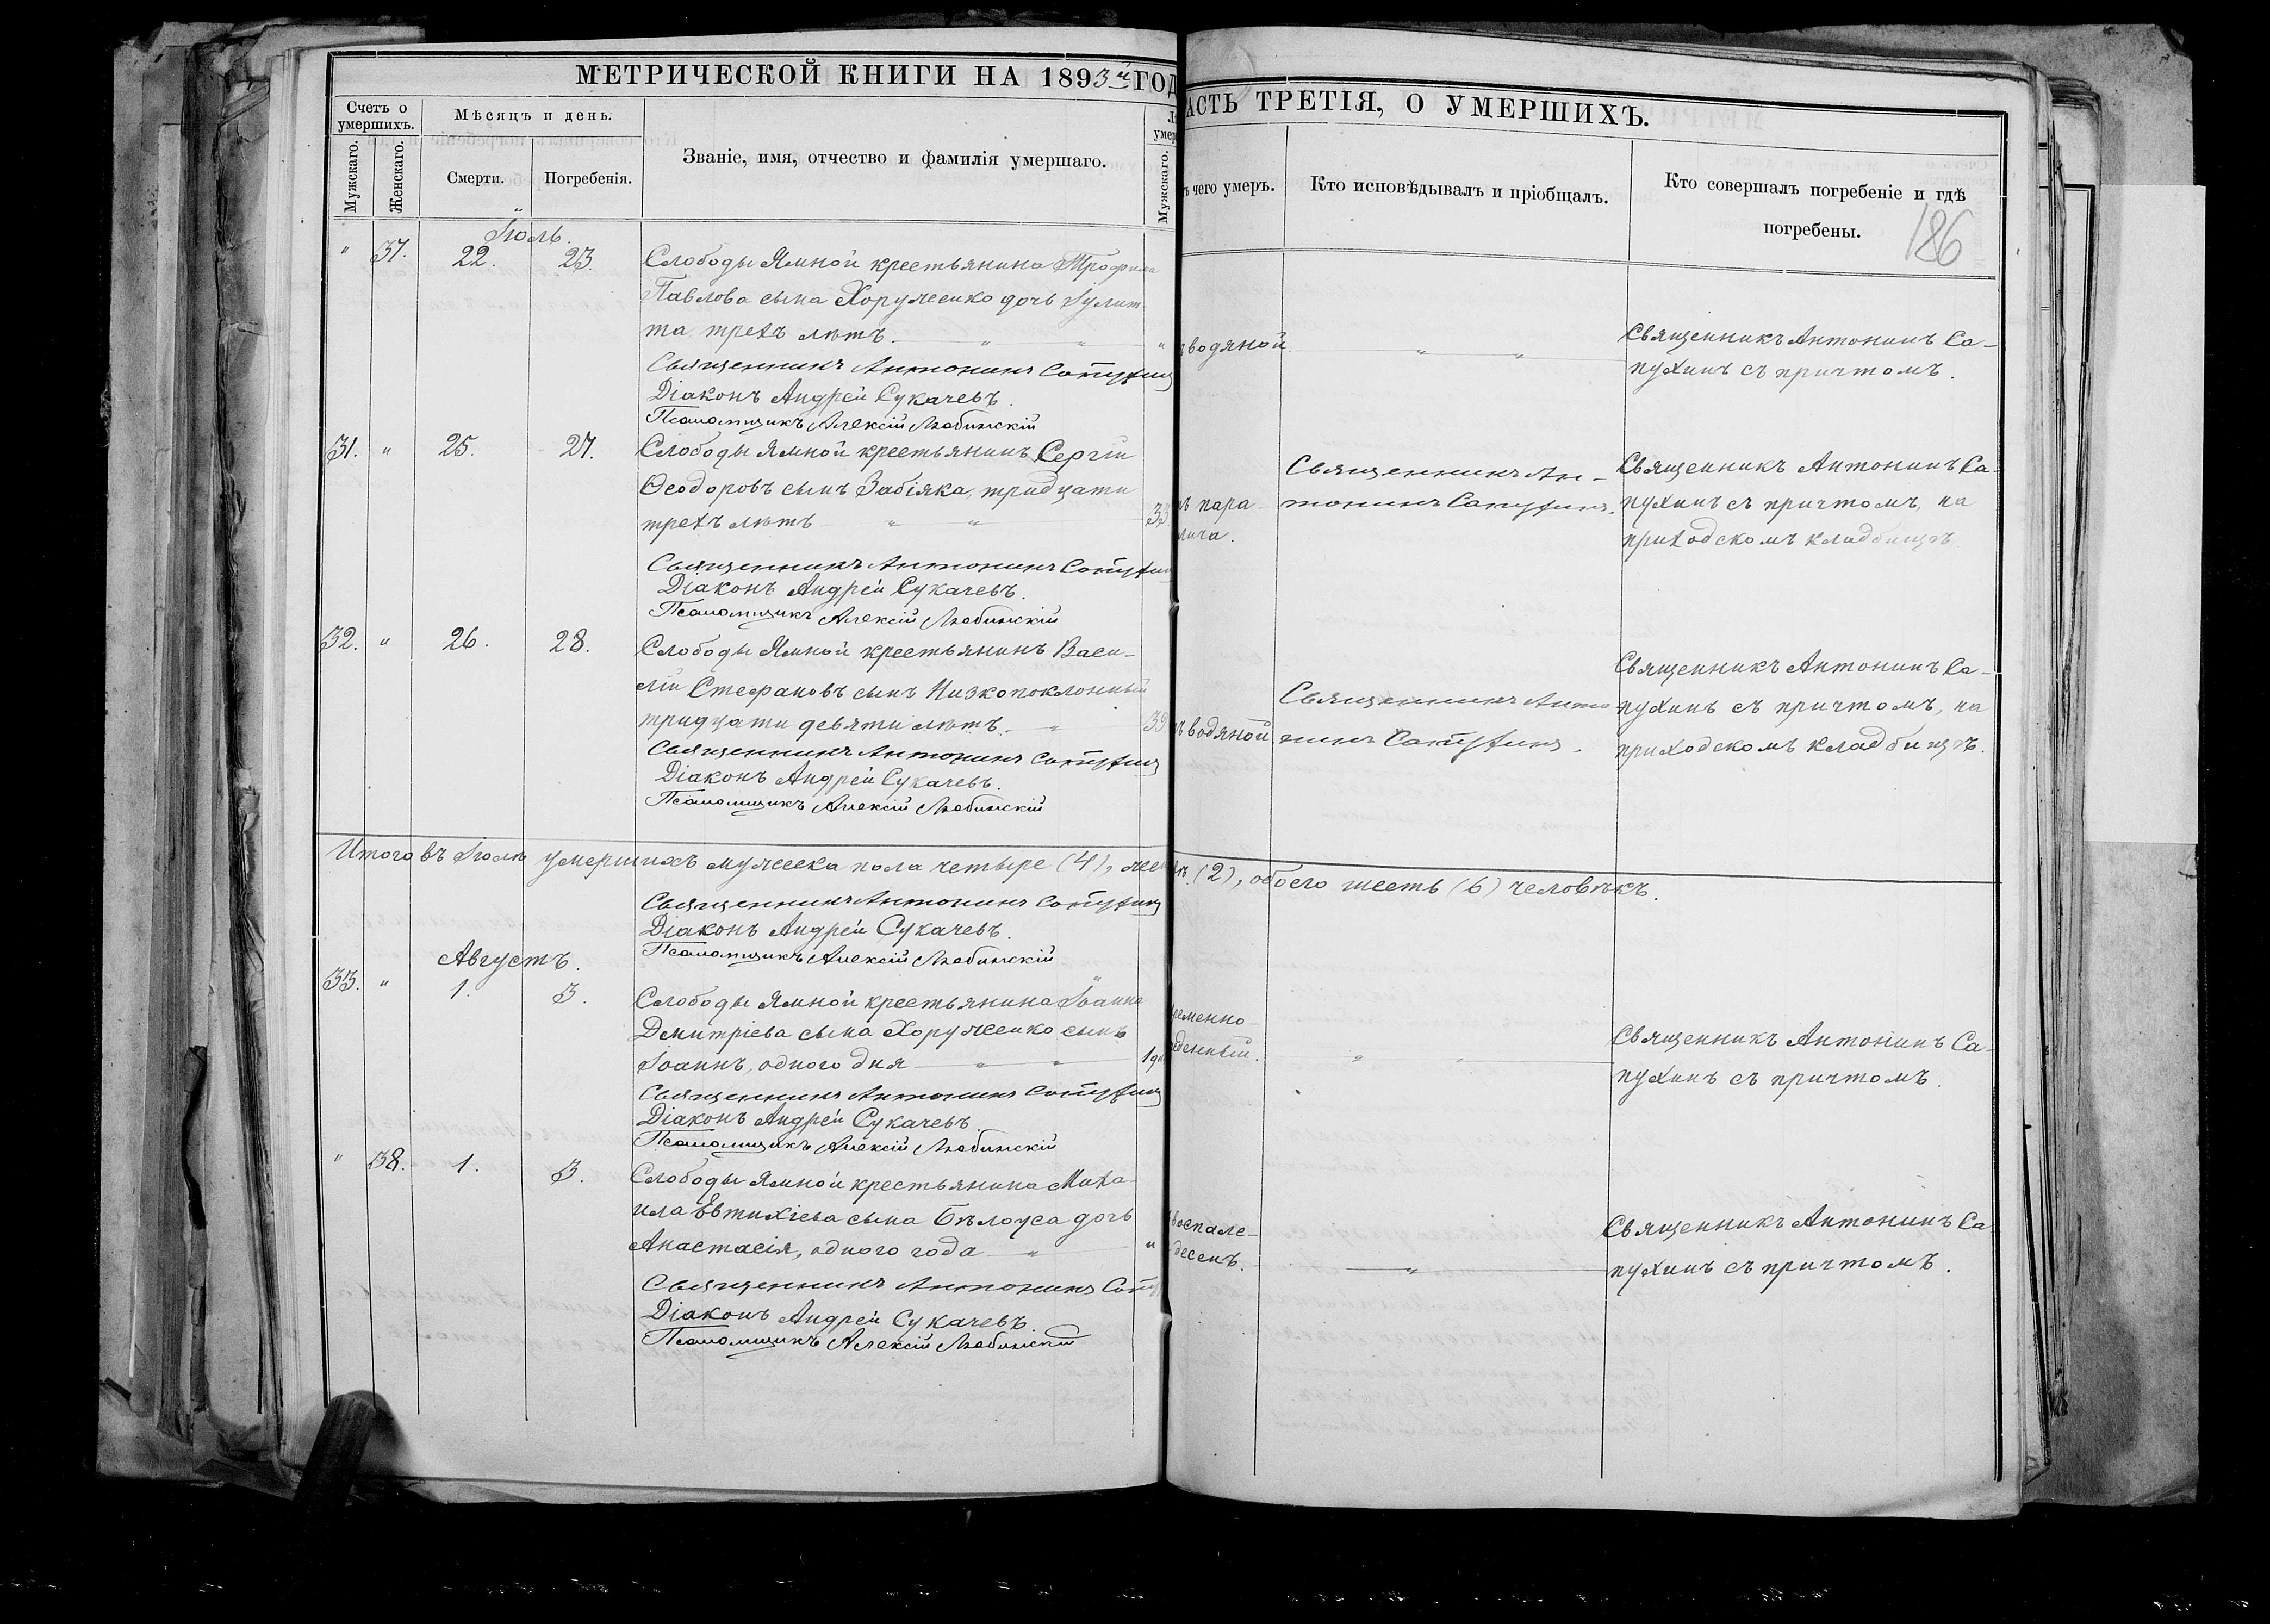 МЕТРИЧЕСКОЙ КНИГИ НА 1893й ГОД
Счетъ о умершихъ.
Мужскаго.
Женскаго.
Мѣсяцъ и день.
Смерти.
Погребенія.
Званіе, имя, отчество и фамилія умершаго.
Мужскаго.
Іюль.
" 37. 22. 23. Слободы Ямной крестьянина Трофима
Павлова сына Хоружеико дочь Іулит-
та, трехъ лѣтъ. " " "
Священникъ Антонинъ Сапухин
Діаконъ Андрей Сукачевъ.
Псаломщикъ Алексій Любинскій
31. " 25. 27. Слободы Ямной крестьянинъ Сергій
Ѳеодоровъ сынъ Забіяка, тридцати
трехъ лѣтъ " " 33
Священникъ Антонинъ Сапухин
Діаконъ Андрей Сукачевъ.
Псаломщикъ Алексій Любинскій
32. " 26. 28. Слободы Ямной крестьянинъ Васи-
лій Стефановъ сынъ Низкопоклонный
тридцати девяти лѣтъ. " 39
Священникъ Антонинъ Сапухин
Діаконъ Андрей Сукачевъ.
Псаломщикъ Алексій Любинскій
Итого въ Іюлѣ умершихъ мужеска пола четыре (4), жен
Священникъ Антонинъ Сапухин
Діаконъ Андрей Сукачевъ.
Псаломщикъ Алексій Любинскій
Августъ.
33. " 1. 3. Слободы Ямной крестьянина Іоанна
Димитріева сына Хоружеико сынъ
Іоаннъ, одного дня " " 1 дн
Священникъ Антонинъ Сапухин
Діаконъ Андрей Сукачевъ.
Псаломщикъ Алексій Любинскій
" 38. 1. 3. Слободы Ямной крестьянина Миха-
ила Евтихіева сына Бѣлоуса дочь
Анастасія, одного года " "
Священникъ Антонинъ Сапу
Діаконъ Андрей Сукачевъ
Псаломщикъ Алексій Любинскій
АСТЬ ТРЕТІЯ, О УМЕРШИХЪ.
ъ чего умеръ.
Кто исповѣдывалъ и пріобщалъ.
Кто совершалъ погребеніе и гдѣ
погребены.
186
водяной. " "
Священникъ Антонинъ Са-
пухинъ съ причтомъ.
пара-
лича.
Священникъ Ан-
тонинъ Сапухинъ.
Священникъ Антонинъ Са-
пухинъ съ причтомъ, на
приходскомъ кладбищѣ
водяной
Священникъ Анто
нинъ Сапухинъ.
Священникъ Антонинъ Са-
пухинъ съ причтомъ, на
приходскомъ кладбищѣ.
(2), обоего шесть (6) человѣкъ.
ременно-
жденный. " "
Священникъ Антонинъ Са-
пухинъ съ причтомъ.
воспале-
десенъ. "
Священникъ Антонинъ Са
пухинъ съ причтомъ.